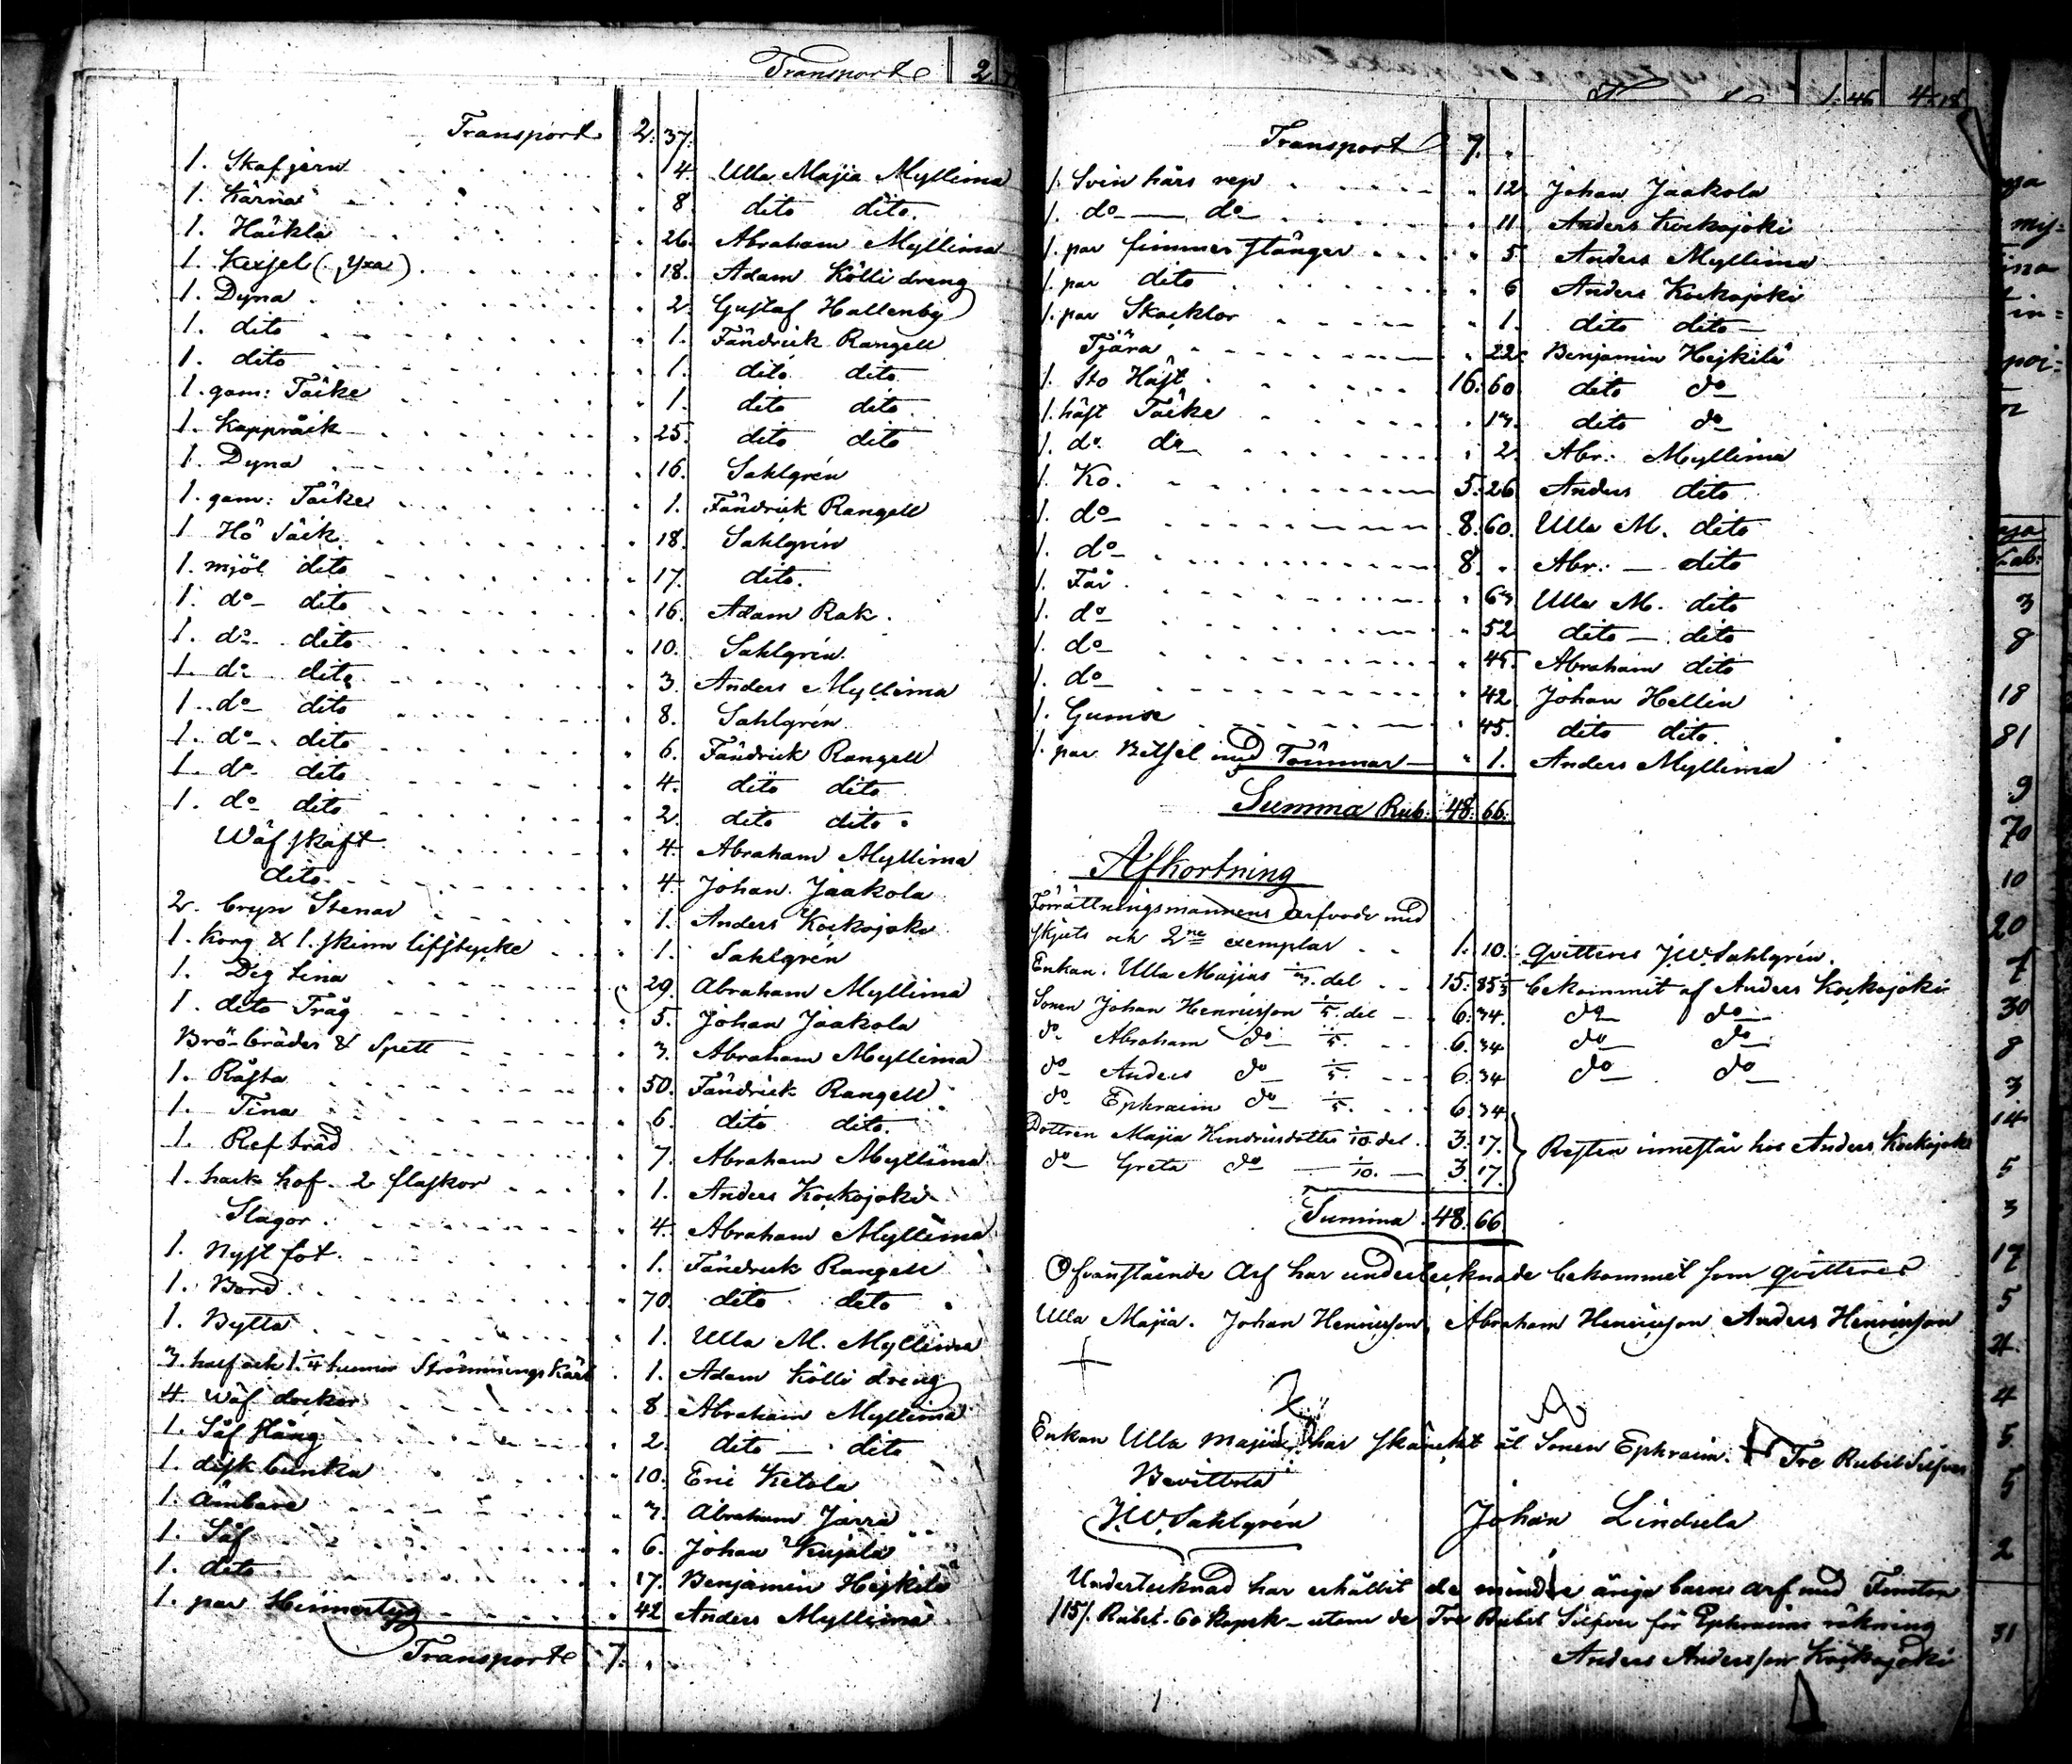 Transport 2
Transport 2. 37.
1. Skafjern . 4. Ulla Majia Myllima
1. Kärna . 8. dito dito.
1. Häckla . 26. Abraham Myllima
1. Kexsel (, Yxa) . 18. Adam Kölli dreng
1. Dyna . 2. Gustaf Hallenby
1. dito . 1. Fändrick Rangell
1. dito . 1. dito dito
1. gam: Täcke . 1. dito dito
1. Kappräck . 25. dito dito
1. Dyna . 16. Sahlgrén
1. gam: Täcke . 1. Fändrick Rangell
1 Hö Säck . 18. Sahlgrén
1. mjöl dito . 17. dito.
1. do dito . 16. Adam Rak.
1. do dito . 10. Sahlgrén.
1. do dito . 3. Anders Myllima
1. do dito . 8. Sahlgrén
1. do dito . 6. Fändrick Rangell
1. do dito . 4. dito dito
1. do dito . 2. dito dito.
Wäf skaft . 4. Abraham Myllima
dito . 4. Johan Jaakola
2. bryn Stenar . 1. Anders Kockojoki
1. korg & 1. skinn lifstycke . 1. Sahlgrén
1. Deg tina . 29. Abraham Myllima
1. dito Tråg . 5. Johan Jaakola
Brö bräder & Spett . 3. Abraham Myllima
1. Råsta . 50. Fändrick Rangell
1. Tina . 6. dito dito.
1. Ref träd . 7. Abraham Myllima
1. hack hof. 2 flaskor . 1. Anders Kockojoki
Slagor . 4. Abraham Myllima
1. Nyst fot . 1. Fändrick Rangell
1. Bord . 70. dito dito
1. Bytta . 1. Ulla M. Myllima
3. half och 1. 1/4 Strömmings Kärl . 1. Adam Kölli dreng
4 Wäf dockor . 8. Abraham Myllima
1. Såf stång . 2. dito dito
1. disk bunka . 10. Eric Ketola
1. ämbare . 7. Abraham Jarra
1. Såf . 6. Johan Kujala
1. dito . 17. Benjamin Hejkilä
1. par . 42 Anders Myllima
Transport 7. . .
1. 46 4. 18
Transport 7. .
1. Svin hårs rep . 12. Johan Jaakola
1. do do . 11. Anders Kockojoki
1. par timmer stänger . 5. Anders Myllima
1. par dito . 6 Anders Kockojoki
1. par Skacklor . 1. dito dito
Tjära . 22. Benjamin Hejkilä
1. Sto Häst . 16. 60. dito do
1. häst Täcke . dito do
1. do do . 2. Abr: Myllima
1. Ko . 5. 26. Anders dito
1. do 8. 60. Ulla M. dito
1. do 8. . Abr: dito
1. Får . Ulla M. dito
1. do . 52. dito dito
1. do . 45. Abraham dito
1. do . 42. Johan Hellin
1. Gumse . 45. dito dito.
1. par Betsel med Tömmar . 1. Anders Myllima
Summa Rub: 48. 66.
Afkortning
Förrättningsmannens arfvode med
skjuts och 2ne exemplar 1. 10. qvitteres J.W. Sahlgrén.
Enkan Ulla Majias 1/3. del 15. 85 1/3 bekommit af Anders Kockojoki
Sonen Johan Henricsson 1/5. del 6. 34. do do
do Abraham do 1/5. 6. 34 do do
do Anders do 1/5. 6. 34 do do
do Ephraim do 1/5. 6. 34
Dottren Majia Hendricsdotter 1/10 del. 3. 17. Resten innestår hos Anders Kockojoki
do Greta do 1/10. 3. 17.
Summa 48. 66
Ofvanstående Arf har undertecknade bekommit som qvitteres
Ulla Majia. Johan Henricsson, Abraham Henricsson Anders Henricsson
Enkan Ulla Majia har skänckt åt Sonen Ephraim. Tre Rubel Silfver
Bevittna
J.W. Sahlgrén Johan Lindula
Undertecknad har erhållit de mindre åriga barns arf med Femton
/15/. Rubel. 60 kopek utom de Tre Rubel Silfver för Ephraims räkning
Anders Andersson Kockojoki
my=
in=
poi=
3
8
18
81
9
70
10
20
7
30
8
3
14
5
3
17
5
4
5
5
2
31